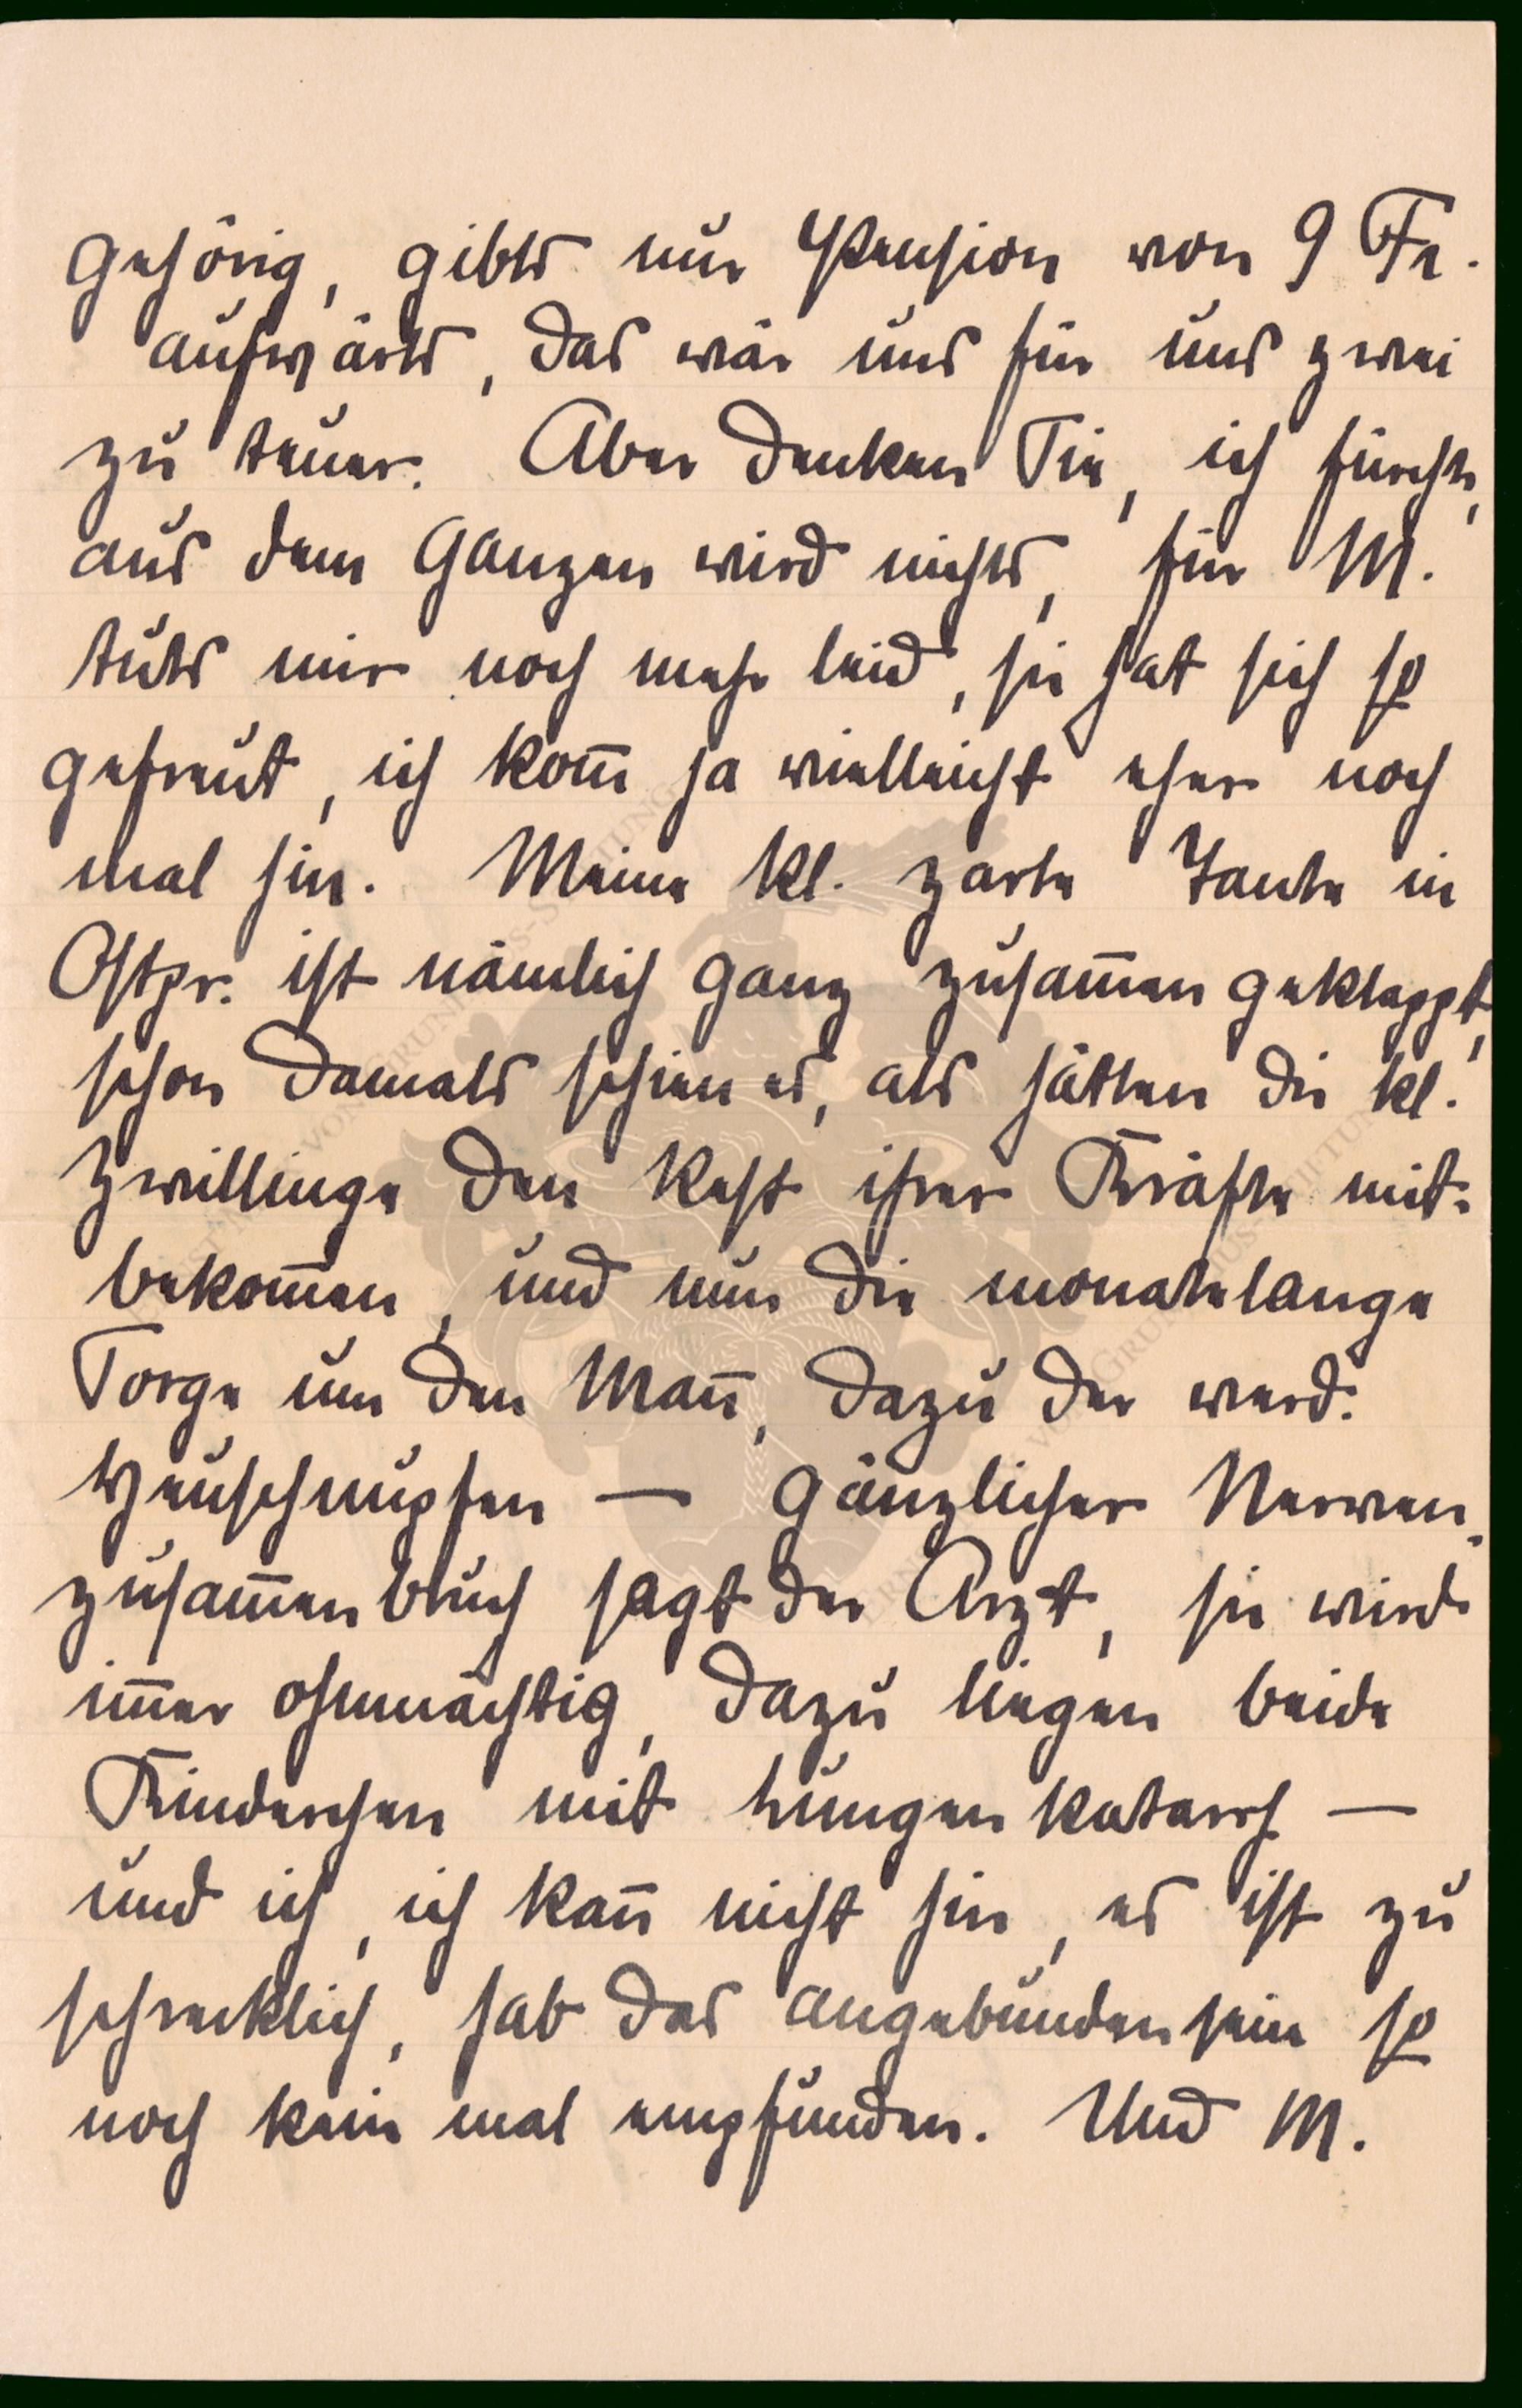 gehörig, gibts nur Pension von 9 Fr.
aufwärts, das wär uns für uns zwei
zu teuer. Aber denken Sie, ich fürchte,
aus dem Ganzen wird nichts, für M.
tuts mir noch mehr leid, sie hat sich so
gefreut, ich kom̄ ja vielleicht eher noch
mal hin. Meine kl. zarte Tante in
Ostpr. ist nämlich ganz zusam̄engeklappt,
schon damals schien es, als hätten die kl.
Zwillinge den Rest ihrer Kräfte mit-
bekom̄en, und nun die monatelange
Sorge um den Man̄, dazu der
Heuschnupfen — gänzlicher Nerven-
zusam̄enbruch sagt der Arzt, sie wird
im̄er ohnmächtig, dazu liegen beide
Kinderchen mit Lungenkatarrh —
und ich, ich kan̄ nicht hin, es ist zu
schrecklich, hab das angebundensein so
noch kein mal empfunden. Und M.